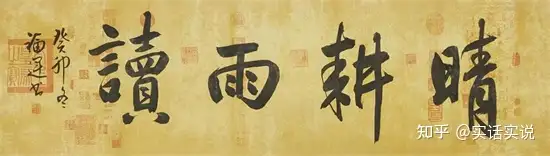 晴耕雨讀
癸卯冬
福運書
知乎 @实话实说